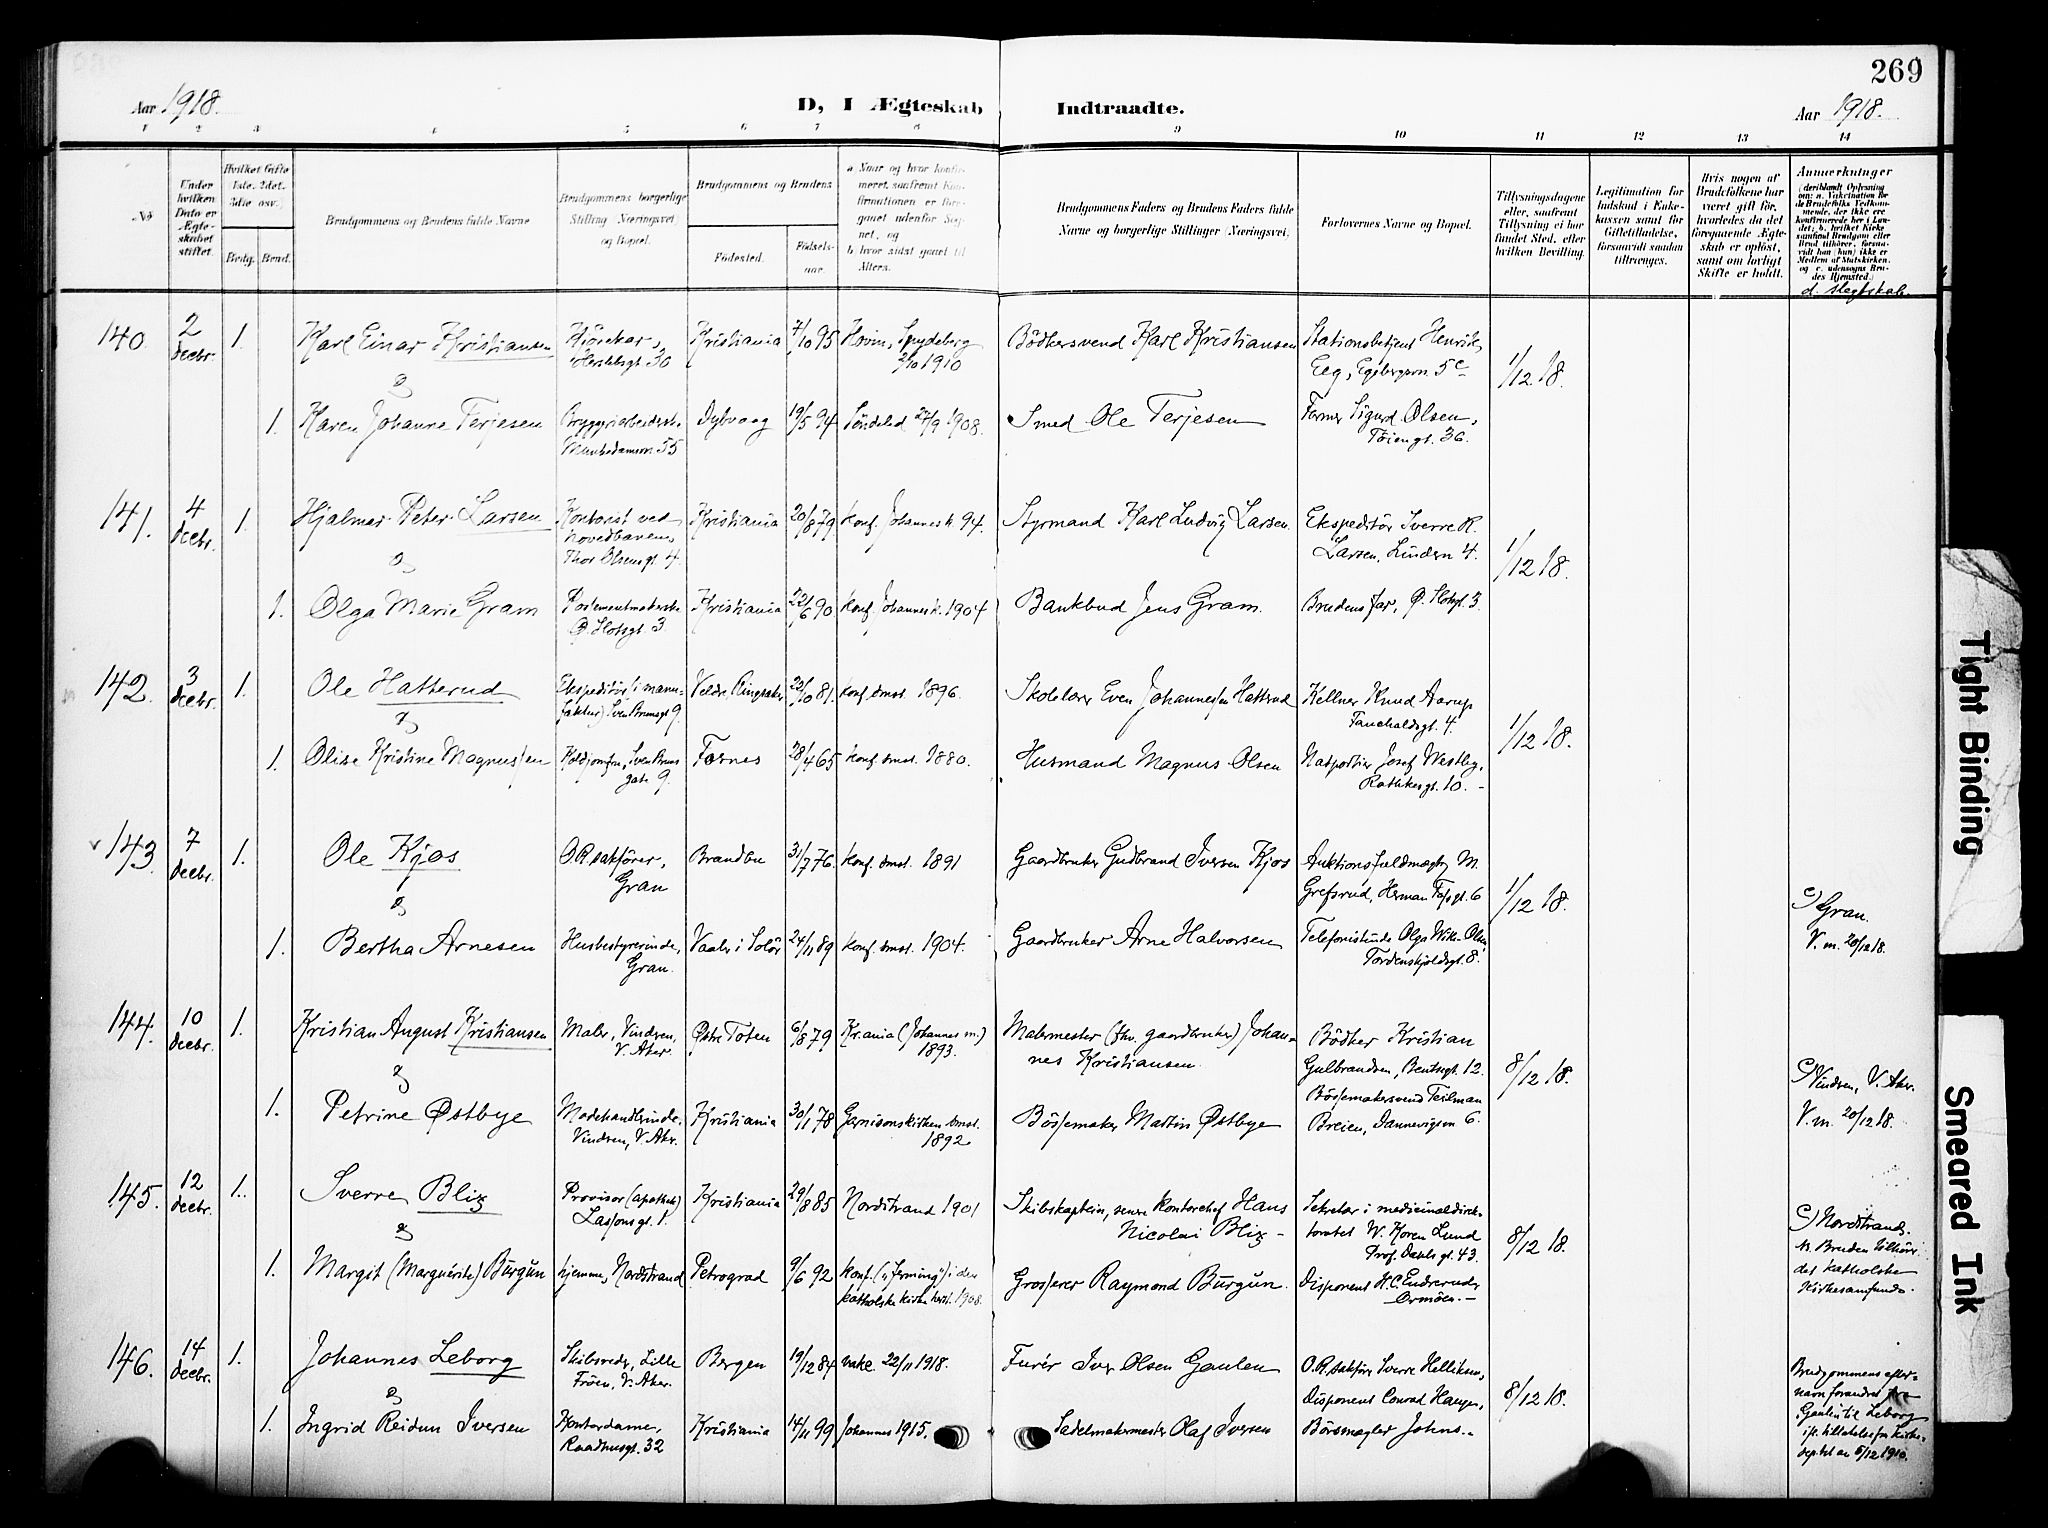 269
Aar 1918.
D, I Ægteskab Indtraadte.
Aar 1918.
1 2 3 4 5 6 7 8 9 10 11 12 13 14
No
Under hvilken Dato er Ægteskabet stiftet.
Hvilket Gifte 1ste, 2det, 3die osv.
Brdg. Brud.
Brudgommens og Brudens fulde Navne
Brudgommens borgerlige Stilling (Næringsvei) og Bopæl.
Brudgommens og Brudens
Fødested. Fødselsaar.
a. Naar og hvor konfirmeret, saafremt Konfirmationen er foregaaet udenfor Sognet, og
b. hvor sidst gaaet til Alters.
Brudgommens Faders og Brudens Faders fulde
Navne og borgerlige Stillinger (Næringsvei)
Forlovernes Navne og Bopæl.
Tillysningsdagene eller, saafremt Tillysning ei har fundet Sted, efter hvilken Bevilling.
Legitimation for Indskud i Enkekassen samt for Giftetilladelse, forsaavidt saadan tiltrænges.
Hvis nogen af Brudefolkene har været gift før, hvorledes da det foregaaende Ægteskab er opløst, samt om lovligt Skifte er holdt.
Anmærkninger
d. slegtskab.
140. 2 decbr. 1. Karl Einar Kristiansen
Kjørekar, Herslebsgt 36
Kristiania 7/10 95
Hovin, Spydeberg 2/10 1910
Bödkersvend Karl Kristiansen
Stationsbetjent Henrik Eeg, Egebergsvn 5c
1/12 18.
&
1. Karen Johanne Terjesen
Bryggeriarbeiderske
55
Dybvaag 19/5 94
Söndeled 27/9 1908.
Smed Ole Terjesen
Farmer Sigurd Olsen, Töiengt. 36.
141. 4 decbr. 1. Hjalmar Peter Larsen
Kontorist ved hovedbanen, Thor Olsensgt 4.
Kristiania 20/8 79
konf. Johannesk. 94.
Styrmand Karl Ludvig Larsen.
Ekspeditör Sverre R. Larsen, Lindern 4.
1/12 18.
&
1. Olga Marie Gram
Possementmakerske Ø. Slotsgt. 3
Kristiania 22/6 90
konf. Johannesk. 1904
Bankbud Jens Gram.
Brudens far, Ø. Slotsgt. 3
142. 3 decbr. 1. Ole Hatterud
Ekspeditör (i manufaktur) Sven Brunsgt 9.
Veldre, Ringsaker 23/10 81.
konf. smst. 1896.
Skolelærer Even Johannessen Hatterud
Kellner Knud Aarup
4.
1/12 18.
&
1. Olise Kristine Magnussen
Koldjomfru, Sven Bruns gate 9.
28/4 65
konf. smst. 1880.
Husmand Magnus Olsen
Natportier Josef Westby, Rathkesgt. 10.
143. 7 decbr. 1. Ole Kjos
O.R.sakförer, Gran
Brandbu 31/7 76.
konf. smst. 1891
Gaardbruker Gudbrand Iversen Kjos
Auktionsfuldmægtig M. Grefsrud, Herman Fossgt. 6
1/12 18.
c) Gran.
V. m. 20/12 18.
&
1. Bertha Arnesen
Husbestyrerinde, Gran.
Vaaler i Solör 24/11 89
konf. smst. 1904.
Gaardbruker Arne Halvorsen
Telefonistinde Olga Olsen, Tordenskjoldsgt. 8.
144. 10 decbr. 1. Kristian August Kristiansen
Maler, Vindren, V. Aker.
Østre Toten 6/8 79
Kr.ania (Johannes m.) 1893.
Malermester (fhv. gaardbruker) Johannes Kristiansen.
Bödker Kristian Gulbrandsen, Bentsegt. 12.
8/12 18.
c) Vindren, V. Aker.
V. m. 20/12 18.
&
1. Petrine Østbye
Modehandlerinde, Vindren, V. Aker.
Kristiania 30/1 78
Garnisonskirken smst. 1892
Bössemaker Martin Østbye
Bössemakersvend Teilman Breien, Dannevigsvn 6.
145. 12 decbr. 1. Sverre Blix
Provisor (apothek) Lassonsgt. 1.
Kristiania 29/8 85
Nordstrand 1901
Skibskaptein, senere kontorchef Hans Nicolai Blix
Sekretær i medicinaldirektoratet W. Koren Lund Prof. Dahls gt. 43.
8/12 18.
c) Nordstrand.
Bruden tilhörer det katholske kirkesamfund.
&
1. Margit (Marguérite) Burgun
hjemme, Nordstrand
Petrograd 9/6 92
konf. ("ferming") i den katholske kirke herst. 1908.
Grosserer Raymond Burgun.
Disponent H.C. Endrerud, Ormöen.
146. 14 decbr. 1. Johannes Leborg
Skibsreder, Lille Fröen, V. Aker.
Bergen 19/12 84
vake 22/11 1918.
Furér Iver Olsen Gaulen
O.R.sakförer Sverre Helliksen,
8/12 18.
Brudgommens efternavn forandret fra Gaulen til Leborg ifl. tilladelse fra kirkedeptet av 5/12 1910.
&
1. Ingrid Reidun Iversen
Kontordame, Raadhusgt. 32
Kristiania 14/11 99
Johannes 1915.
Sadelmakermester Olaf Iversen
Disponent Conrad Haugen,
Börsmægler Johns.
Tight Binding
Smeared Ink